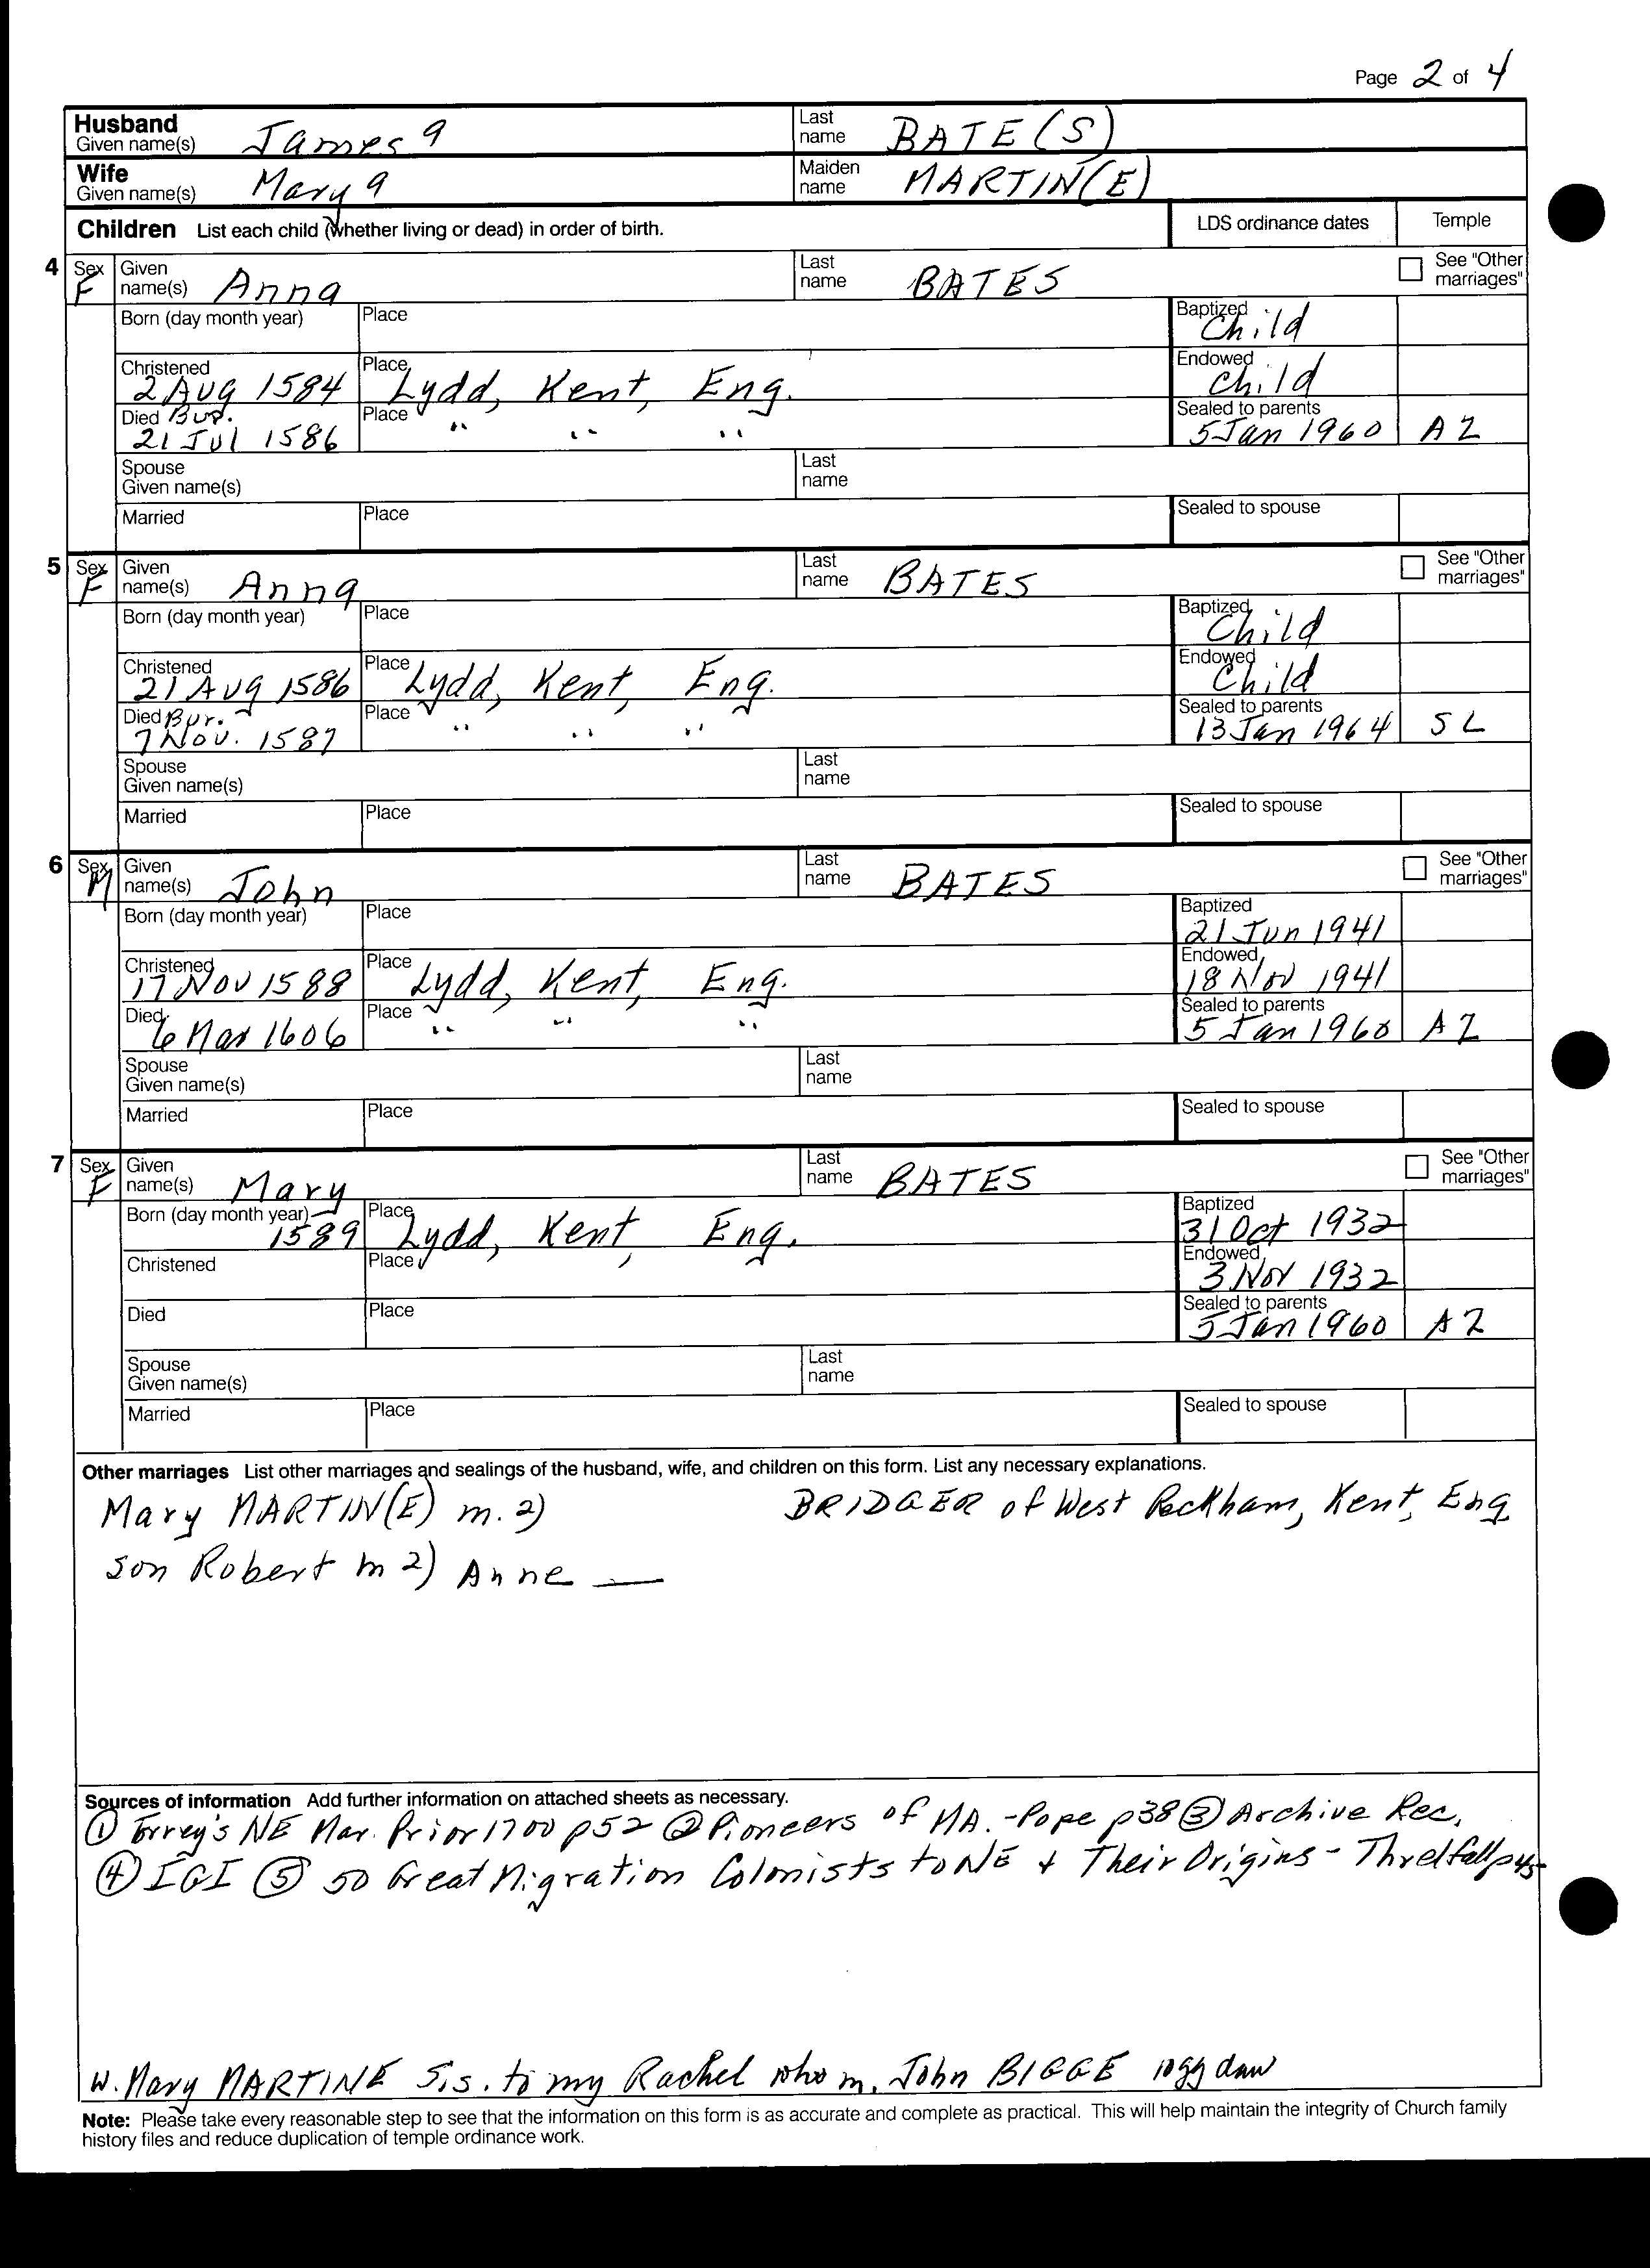 Page 2 of 4
Husband Given name(s) James 9 Last name BATE(S)
Wife Given name(s) Mary 9 Maiden name MARTIN(E)
Children List each child (whether living or dead) in order of birth. LDS ordinance dates Temple
4 Sex F Given name(s) Anna Last name BATES See "Other marriages"
Born (day month year) Place Baptized Child
Christened 2 Aug 1584 Place Lydd, Kent, Eng. Endowed Child
Died Bur. 21 Jul 1586 Place " " " Sealed to parents 5 Jan 1960 AZ
Spouse Given name(s) Last name
Married Place Sealed to spouse
5 Sex F Given name(s) Anna Last name BATES See "Other marriages"
Born (day month year) Place Baptized Child
Christened 21 Aug 1586 Place Lydd, Kent, Eng. Endowed Child
Died Bur. 7 Nov. 1587 Place " " " Sealed to parents 13 Jan 1964 SL
Spouse Given name(s) Last name
Married Place Sealed to spouse
6 Sex M Given name(s) John Last name BATES See "Other marriages"
Born (day month year) Place Baptized 21 Jun 1941
Christened 17 Nov 1588 Place Lydd, Kent, Eng. Endowed 18 Nov 1941
Died 6 Mar 1606 Place " " " Sealed to parents 5 Jan 1960 AZ
Spouse Given name(s) Last name
Married Place Sealed to spouse
7 Sex F Given name(s) Mary Last name BATES See "Other marriages"
Born (day month year) 1589 Place Lydd, Kent, Eng. Baptized 31 Oct 1932
Christened Place Endowed 3 Nov 1932
Died Place Sealed to parents 5 Jan 1960 AZ
Spouse Given name(s) Last name
Married Place Sealed to spouse
Other marriages List other marriages and sealings of the husband, wife, and children on this form. List any necessary explanations.
Mary MARTIN(E) m. 2) BRIDGER of West Peckham, Kent, Eng
son Robert m 2) Anne —
Sources of information Add further information on attached sheets as necessary.
① Torrey's NE Mar. Prior 1700 p52 ② Pioneers of MA. - Pope p38 ③ Archive Rec.
④ IGI ⑤ 50 Great Migration Colonists to NE & Their Origins - Threlfall p45
W. Mary MARTINE Sis. to my Rachel who m. John BIGGE 10gg dau
Note: Please take every reasonable step to see that the information on this form is as accurate and complete as practical. This will help maintain the integrity of Church family
history files and reduce duplication of temple ordinance work.